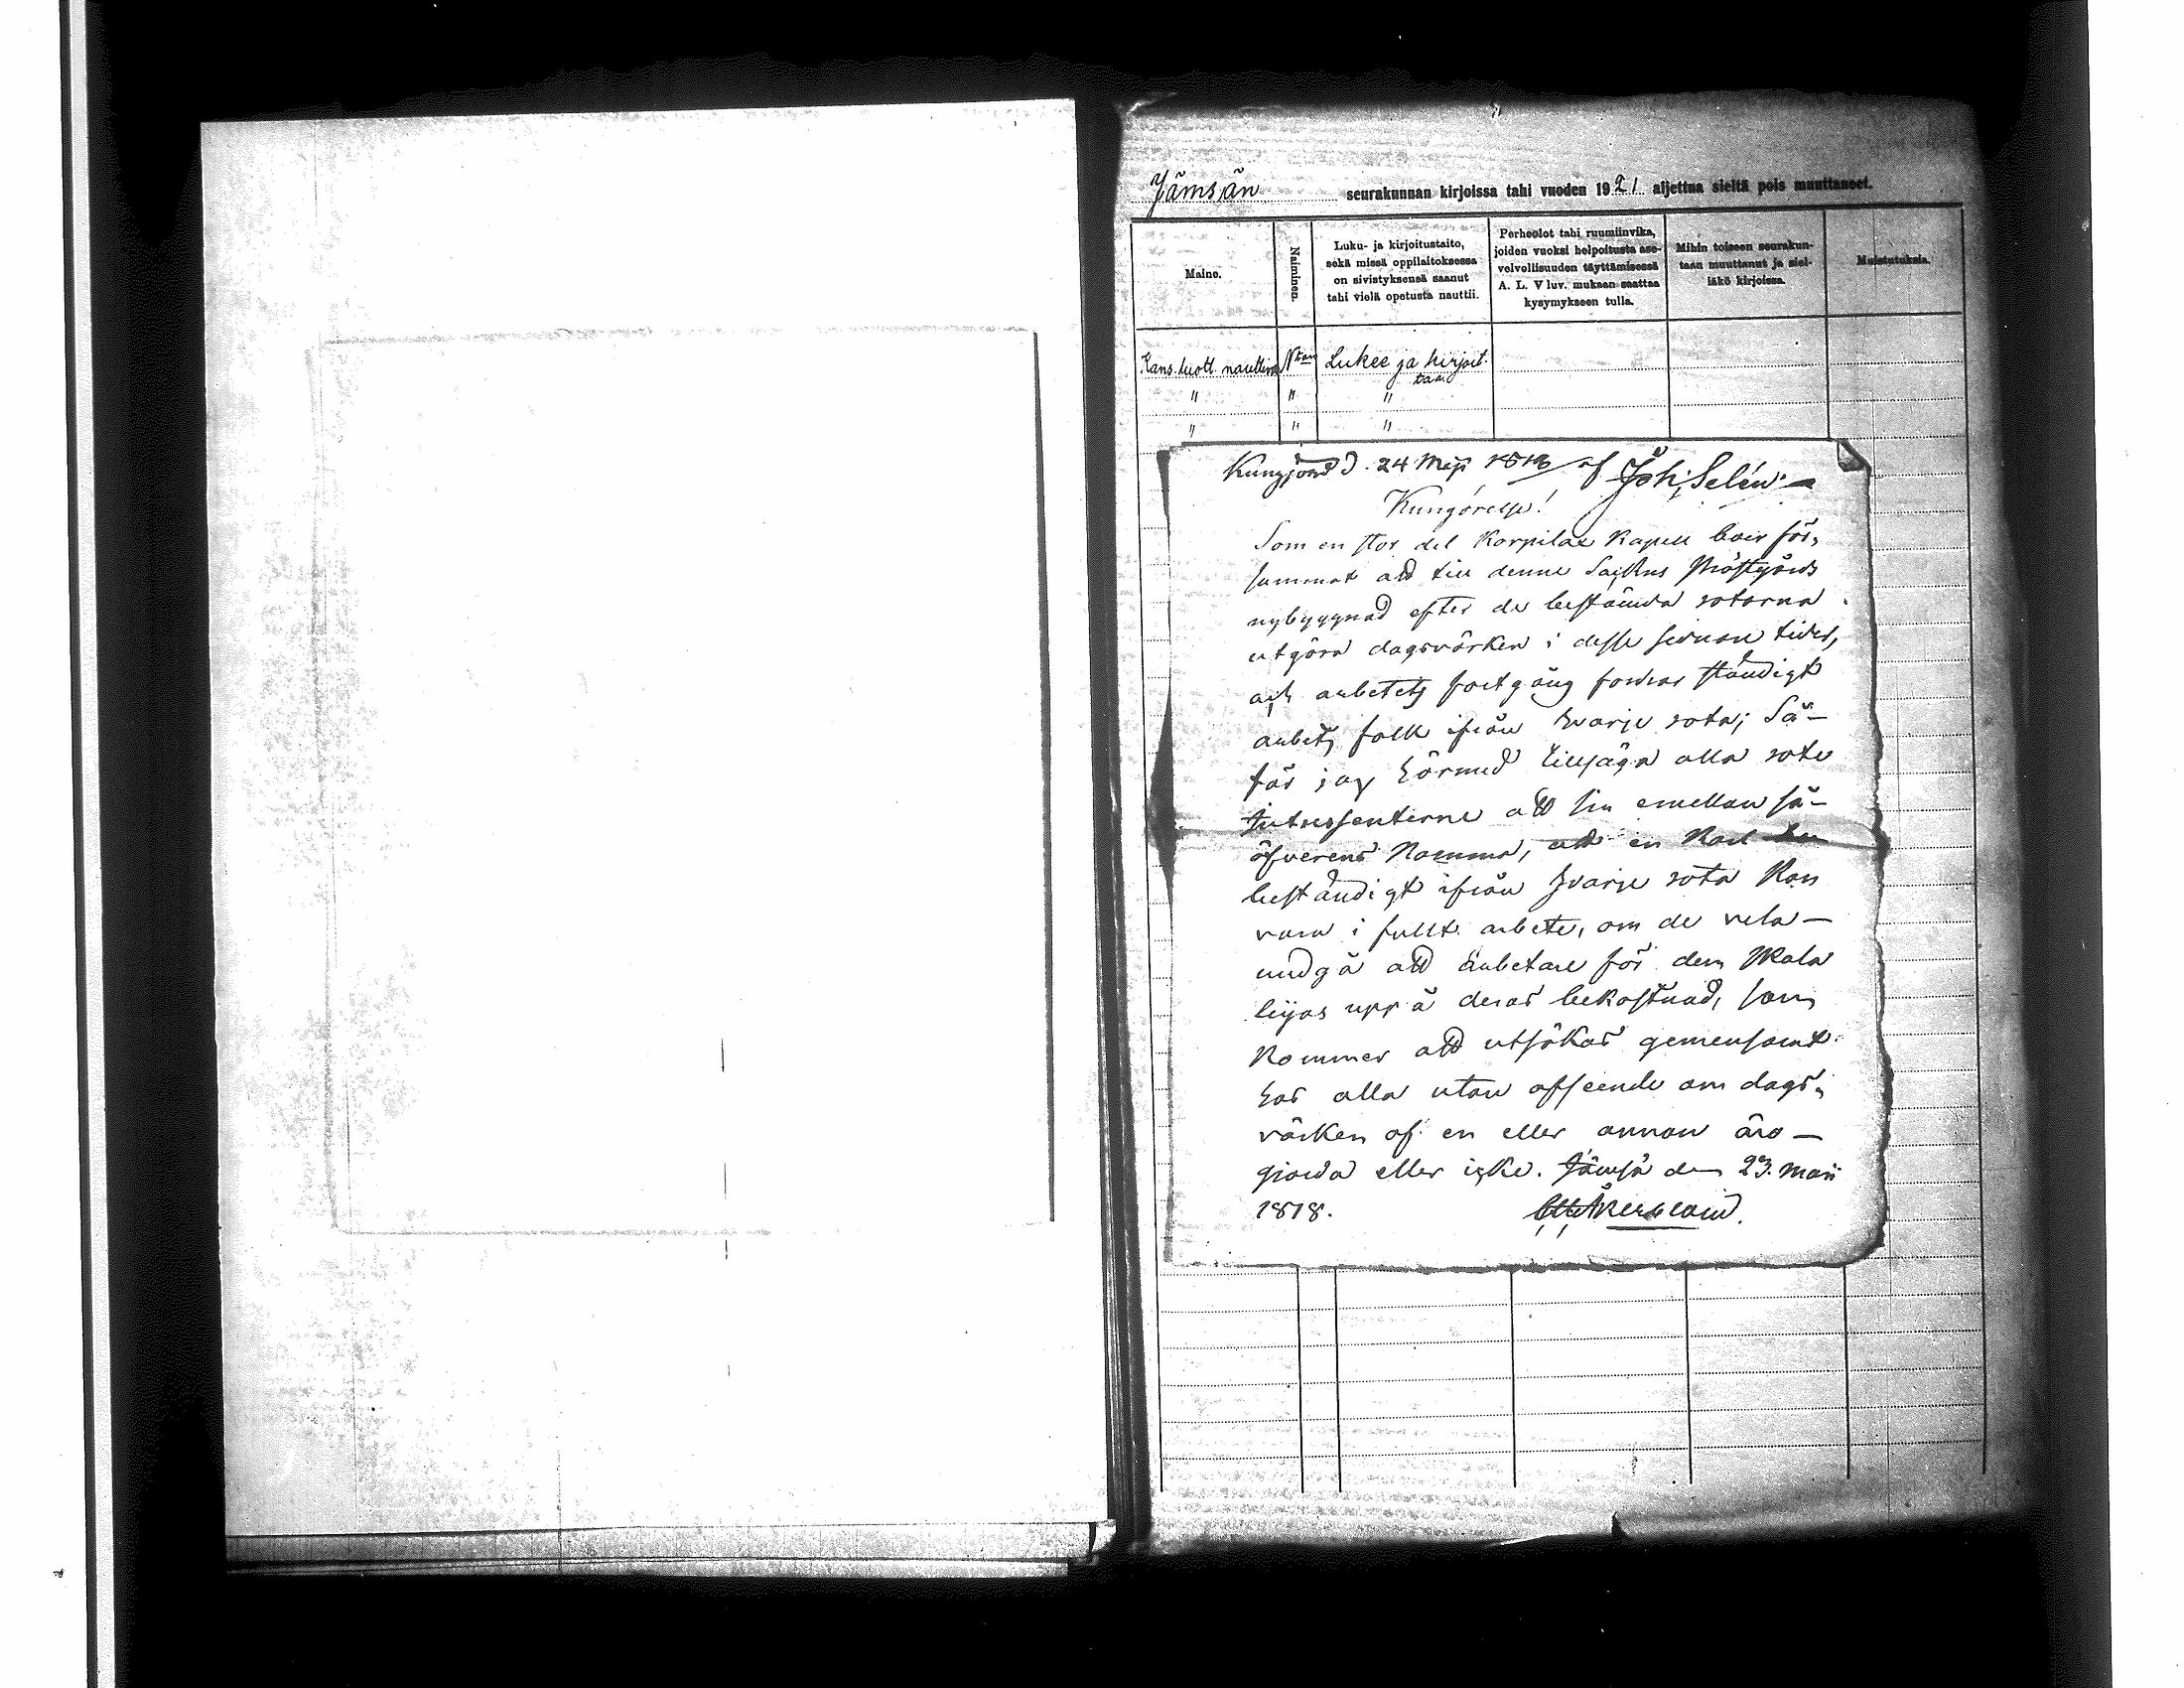 Jämsän seurakunnan kirjoissa tahi vuoden 1921 aljettua sieltä pois muuttaneet.
Maine.
Naiminen.
Luku- ja kirjoitustaito,
sekä missä oppilaitoksessa
on sivistyksensä saanut
tahi vielä opetusta nauttii.
Perheolot tahi ruumiinvika,
joiden vuoksi helpoitusta ase-
velvollisuuden täyttämisessä
A. L. V luv. mukaan saattaa
kysymykseen tulla.
Mihin toiseen seurakun-
taan muuttanut ja siel-
läkö kirjoissa.
Muistutuksia.
Kans. luott. nauttiva Lukee ja kirjoit-
taa
" " "
" " "
Kungjord d. 24 Maji 1818 af Joh. Selén
Kungörelse!
Som en stor del Korpilax Kapell boer för,
summat att till denne Sackens Prästgårds
nybyggnad efter de bestämda rotorna
utgöra dagsvärken i desse sednare tider,
och arbetets fortgång fordrar ständigt
arbets folk ifrån hvarje rota; Så-
får jag härmed tillsäga alla rote
Intressenterne att sin emellan så-
öfverens komma, att en Karl
beständigt ifrån hvarje rota kan
vara i fullt arbete, om de vela-
undgå att arbetare för dem skola
lejas uppå deras bekostnad, som
kommer att utsökas gemensamt
hos alla utan afseende om dags,
värken af en eller annan äro-
giorda eller icke. Jämsä den 23. Maii
1818. Åkerblom.